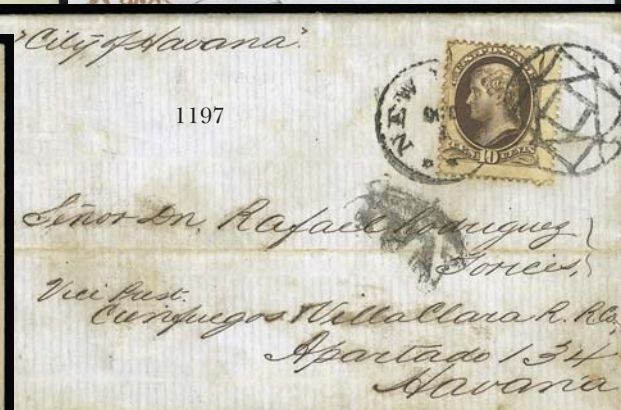 "City of Havana".
1197
NEW
TEN 10 CENTS
Señor Dn. Rafael Rodriguez
Torices,
Vice Prest.
Cienfuegos & Villa Clara R. R. Co.
Apartado 134
Havana